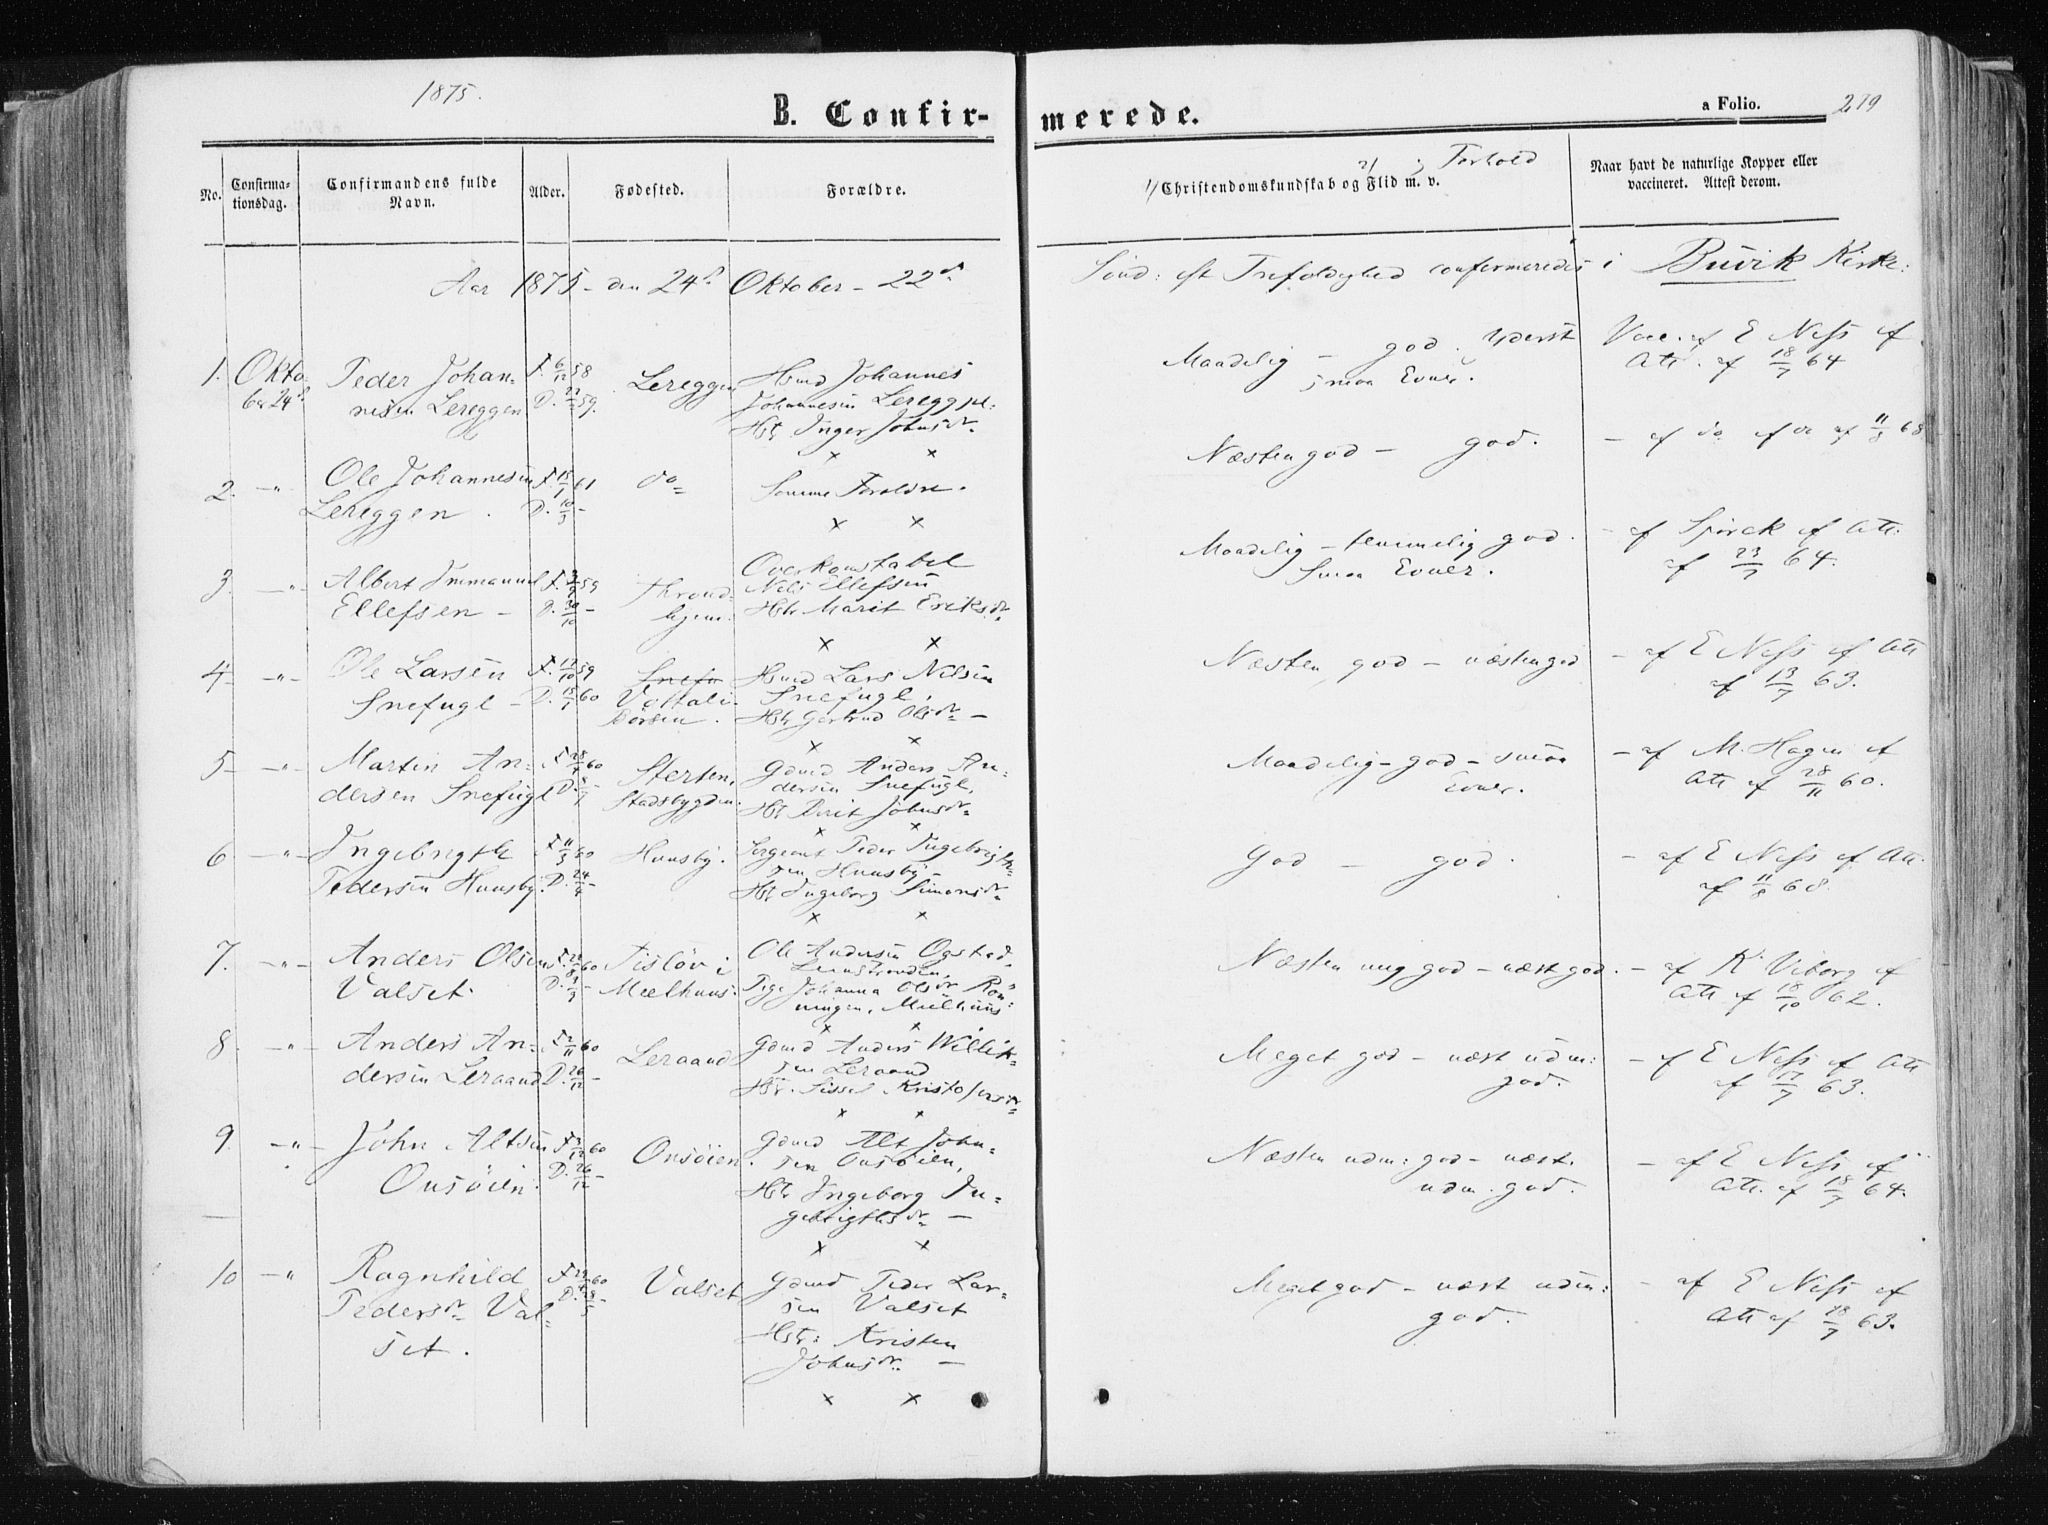 1875.
B. Confirmerede.
a Folio. 279
No.
Confirmationsdag.
Confirmandens fulde Navn.
Alder.
Fødested.
Forældre.
1/ Christendomskundskab og 2/ Flid m. v. ; Forhold
Naar havt de naturlige Kopper eller vaccineret. Attest derom.
Aar 1875 - den 24d Oktober - 22d Sönd: eft Trefoldighed confirmeredes i Buvik Kirke:
1. Okto
ber 24d
Peder Johan-
nesen Lereggen
F. 6/12 58
D. 27/2 59.
Lereggen
Hmd Johannes
Johannesen Leregg
Hst Inger Johnsdr.
x x
Maadelig - god. yderst
smaa Evner.
Vacc. af E Ness ef
Att. af 18/7 64
2. -"- Ole Johannesen
Lereggen.
F. 15/1 61
D. 10/3 -
do
Samme Forældre.
x x
Næsten god - god.
- af do ef do af 11/8 68
3. -"- Albert Immanuel
Ellefsen -
F. 3/9 59
D. 30/10 -
Thrond-
hjem.
Overkonstabel
Nils Ellefsen
Hst Marit Eriksdr.
x x
Maadelig - temmelig god.
Smaa Evner.
- af Spørck ef Att.
af 23/7 64.
4 -"- Ole Larsen
Snefugl -
F. 17/10 59
D. 15/1 60
Snefu
Vottali
Børsen.
Hmd Lars Nilsen
Snefugl,
Hst Gjertrud Olsdr -
x x
Næsten god - næsten god
- af E Ness ef Att
af 13/7 63.
5 -"- Martin An-
dersen Snefugl
F. 28/4 60
D.
Sterten,
Stadsbygden.
Gdmd Anders An-
dersen Snefugl,
Hst Berit Johnsdr
x x
Maadelig - god - smaa
Evner.
- af M. Hagen ef
Att af 28/11 60.
6 -"- Ingebrigth
Pedersen Huusby.
F 11/3 60
D. 24/4 -
Huusby.
Sergeant Peder Ingebrigth-
sen Huusby -
Hst Ingeborg Simonsdr
x x
God - god.
- af E Ness ef Att.
af 11/8 68.
7. -"- Anders Olsen
Valset.
Tislöv i
Meelhuus.
Ole Andersen Ogstad,
Leinstranden,
Pige Johanna Olsdr Rön-
ningen, Meelhuus
x x
Næsten meg god - næst god.
- af K. Viborg ef
Att af 18/10 62.
8 -"- Anders An-
dersen Leraand
F. 2/11 60
D. 26/12 -
Leraand
Gdmd Anders Willik-
sen Leraand
Hst. Sissel Kristofersdr
x x
Meget god - næst udm:
god.
- af E Ness ef Att
af 13/7 63.
9. -"- John Altsen
Onsöien.
F. 3/12 60
D. 26/12 -
Onsöien.
Gdmd Alt John-
sen Onsöien,
Hst Ingeborg In-
gebrigthsdr -
x x
Næsten udm: god - næst.
udm. god.
- af E Ness ef
Att. af 18/7 64.
10 -"- Ragnhild
Pedersdr Val-
set.
F 29/4 60
Valset
Gdmd Peder Lar-
sen Valset
Hst: Kristen
Johnsdr. -
x x
Meget god - næst udm:
god.
- af E Ness ef
Att af 18/7 63.